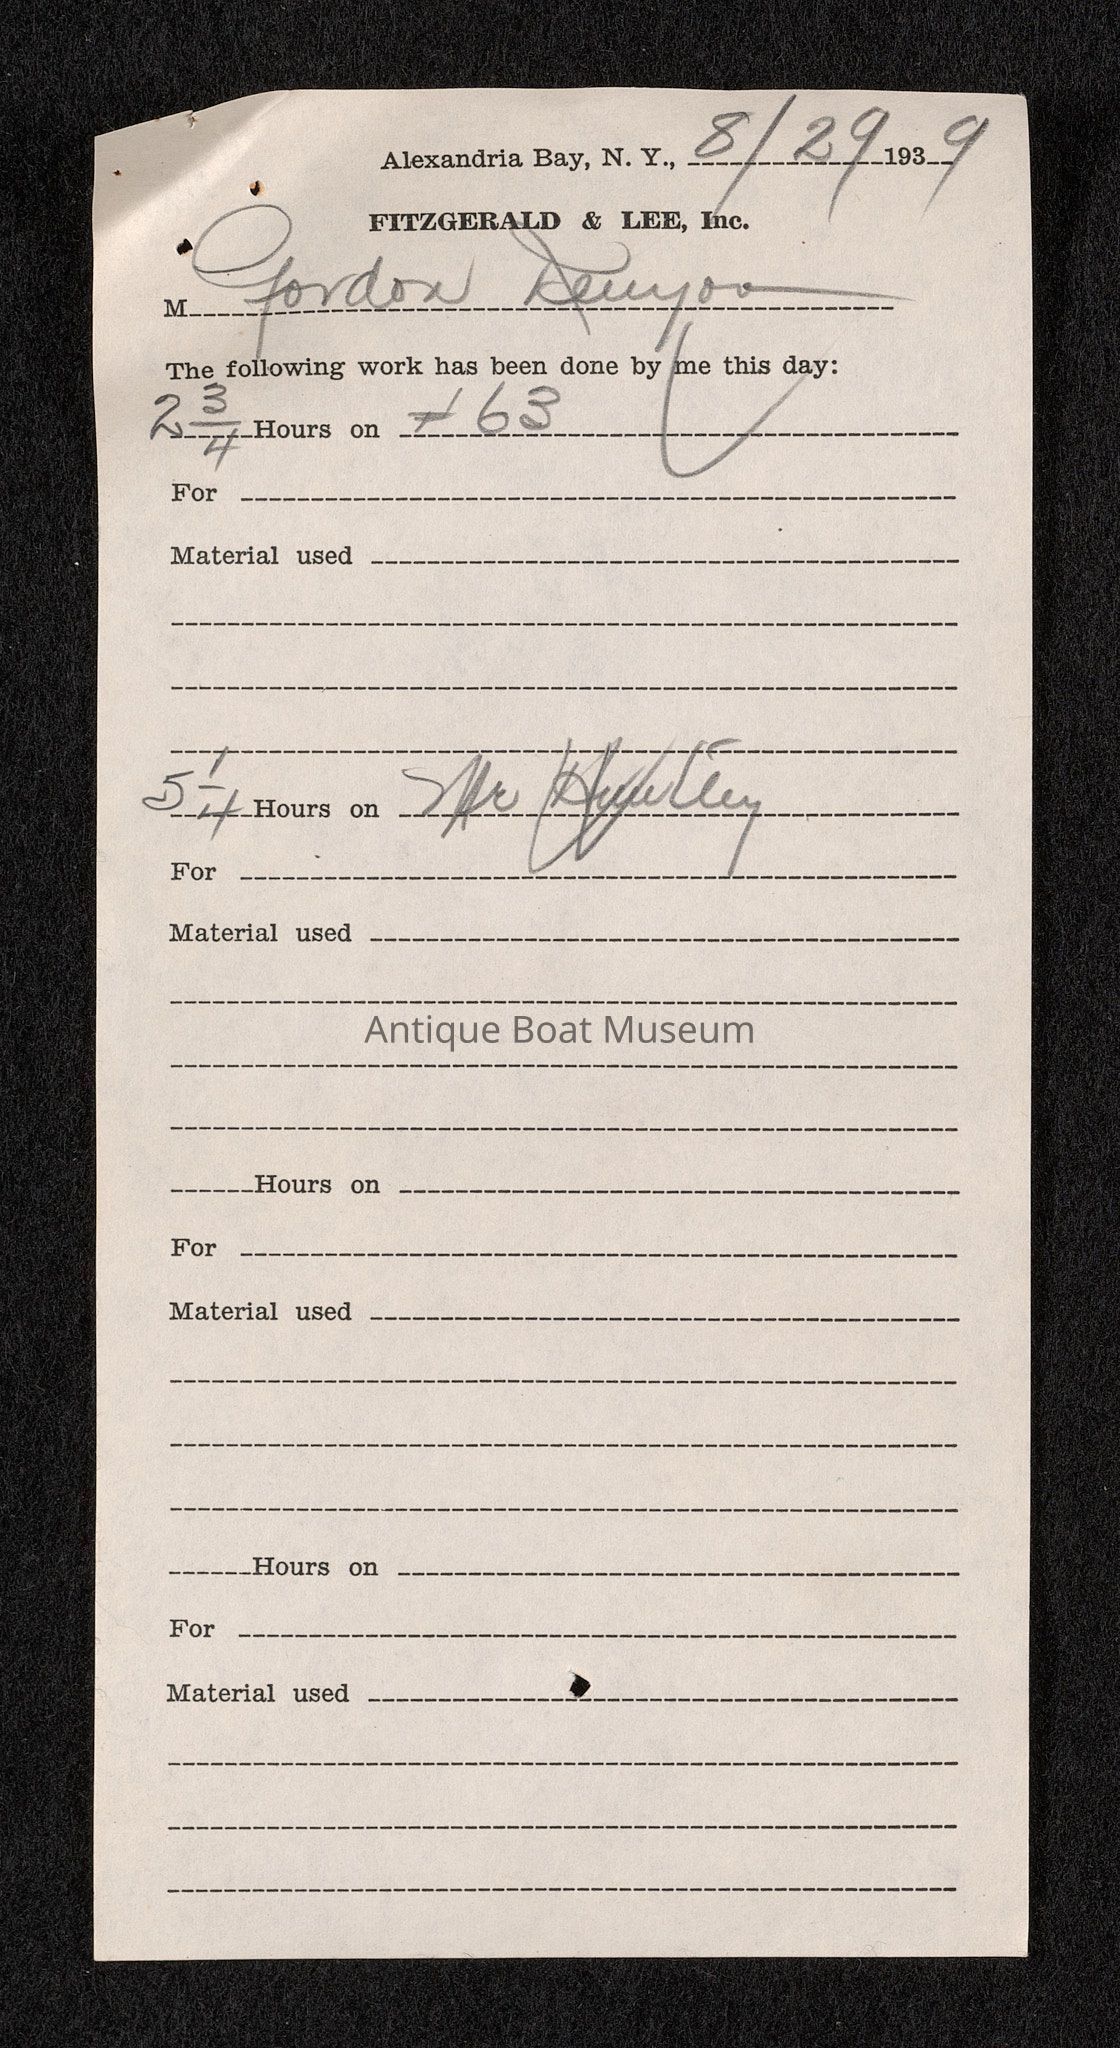 Alexandria Bay, N. Y., 8/29 1939
FITZGERALD & LEE, Inc.
M Gordon Kenyon
The following work has been done by me this day:
2 3/4 Hours on 63
For
Material used
5 1/4 Hours on Mr Huntley
For
Material used
Antique Boat Museum
Hours on
For
Material used
Hours on
For
Material used